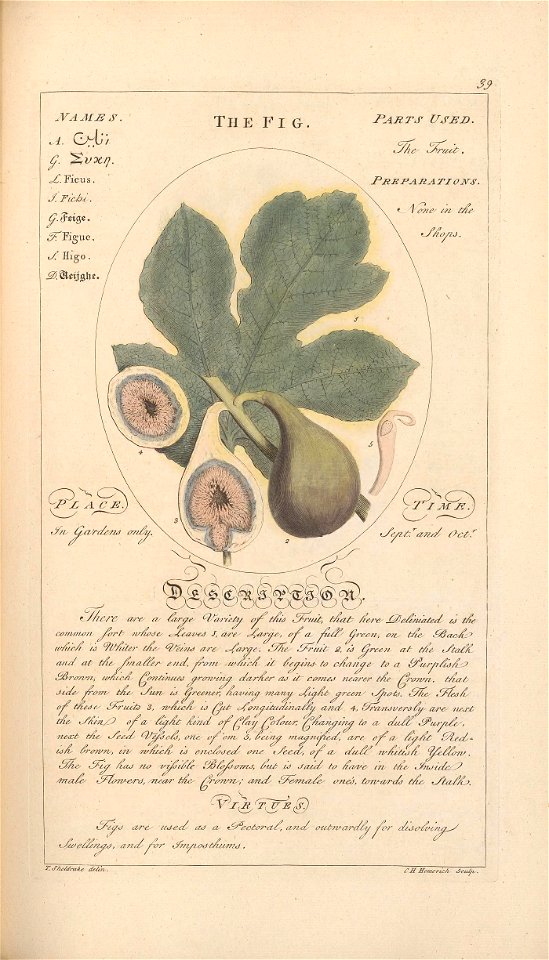 39
NAMES.
A. تاين
G. Συκη.
L. Ficus.
I. Fichi.
G. Feige.
F. Figue.
S. Higo.
D. Veijghe.
THE FIG.
PARTS USED.
The Fruit.
PREPARATIONS.
None in the
Shops.
1
4
5
3
2
PLACE.
In Gardens only.
TIME.
Sept.r and Oct.r
DESCRIPTION.
There are a large Variety of this Fruit, that here Deliniated is the
common sort whose Leaves 1, are Large, of a full Green, on the Back
which is Whiter the Veins are Large. The Fruit 2, is Green at the Stalk
and at the smaller end, from which it begins to change to a Purplish
Brown, which Continues growing darker as it comes nearer the Crown, that
side from the Sun is Greener, having many Light green Spots. The Flesh
of these Fruits 3, which is Cut Longitudinally and 4, Transversly are next
the Skin of a light kind of Clay Colour, Changing to a dull Purple,
next the Seed Vessels, one of em 5, being magnified, are of a light Red-
ish brown, in which is enclosed one Seed, of a dull whitish Yellow.
The Fig has no vissible Blossoms, but is said to have in the Inside
male Flowers, near the Crown; and Female one's, towards the Stalk.
VIRTUES.
Figs are used as a Pectoral, and outwardly for disolving
Swellings, and for Imposthums.
T. Sheldrake delin.
C. H. Hemerich Sculp.